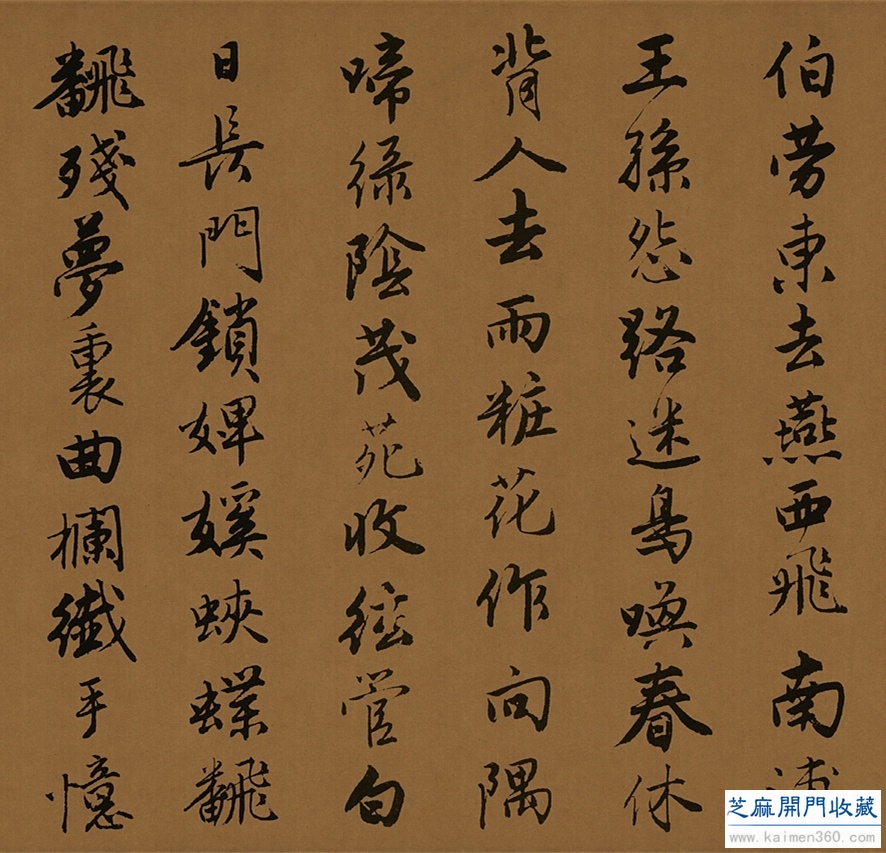 伯勞東去燕西飛南
王孫怨路迷鳥喚春休
背人去雨粧花作向隅
啼綠陰茂苑收絃管白
日長門鎖婢㜎蛺蝶飜
飜殘夢裏曲欄纖手憶
芝麻開門收藏
www.kaimen360.com